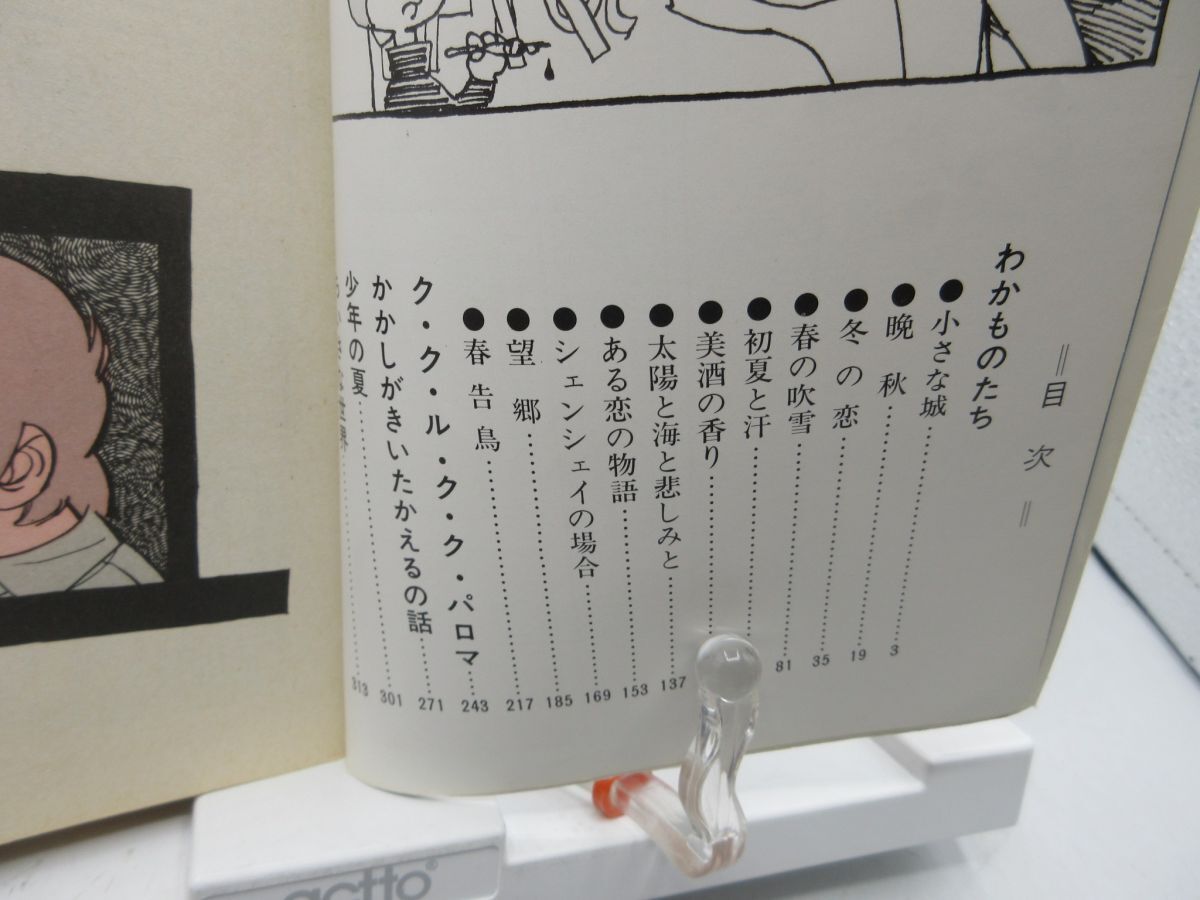 ＝目次＝
わかものたち
●小さな城……3
●晩秋……19
●冬の恋……35
●春の吹雪……81
●初夏と汗……
●美酒の香り……
●太陽と海と悲しみと……137
●ある恋の物語……153
●シェンシェイの場合……169
●望郷……185
●春告鳥……217
ク・ク・ル・ク・ク・パロマ……243
かかしがきいたかえるの話……271
少年の夏……301
世界……313
actto